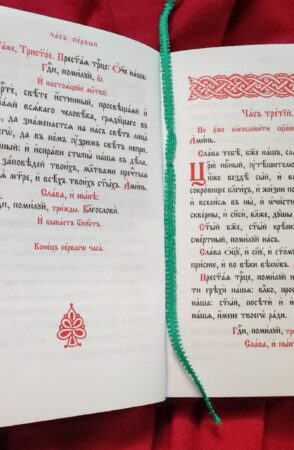 Часъ пе́рвый
Та́же, Трист҃о́е. Прест҃а́ѧ трⷪ҇це: Ѻ҆́ч҃е на́шъ:
Гдⷭ҇и, поми́лꙋй,
И҆ настоѧ́щꙋю моли́твꙋ:
хрⷭ҇те́, свѣ́те и҆́стинный, просвѣща́ѧй и҆
всѧ́каго человѣ́ка, грѧдꙋ́щаго въ
да зна́менаетсѧ на на́съ свѣ́тъ лица̀
да въ не́мъ ᲂу҆́зримъ свѣ́тъ непри-
и҆ и҆спра́ви стѡпы̀ на́шѧ къ дѣ́ла-
за́повѣдей твои́хъ, моли́твами пречⷭ҇тыѧ
мт҃ре, и҆ всѣ́хъ твои́хъ ст҃ы́хъ. А҆ми́нь.
Сла́ва, и҆ ны́нѣ:
Гдⷭ҇и, поми́лꙋй, три́жды. Благословѝ.
И҆ быва́етъ ѿпꙋ́стъ.
Коне́цъ пе́рвагѡ часа̀.
Ча́съ тре́тїй.
По є҆́же благослови́ти
А҆ми́нь.
Сла́ва тебѣ̀, бж҃е на́шъ, сла́
Цр҃ю̀ нбⷭ҇ный, ᲂу҆тѣ́шителю
везде́ сы́й, и҆ всѧ̑
сокро́вище благи́хъ, и҆ жи́зни по
и҆ всели́сѧ въ ны̀, и҆ ѡ҆чи́сти
скве́рны, и҆ сп҃сѝ, бл҃же, дꙋ́шы
Ст҃ы́й бж҃е, ст҃ы́й крѣ́п
сме́ртный, поми́лꙋй на́съ.
Сла́ва ѻ҆ц҃ꙋ̀, и҆ сн҃ꙋ, и҆ ст҃о́мꙋ
при́снѡ, и҆ во вѣ́ки вѣкѡ́въ.
Прест҃а́ѧ трⷪ҇це, поми́лꙋй н
ти грѣхѝ на́шѧ: влⷣко, прос
на́ша: ст҃ы́й, посѣтѝ и҆
на́шѧ, и҆́мене твоегѡ̀ ра́ди.
Гдⷭ҇и, поми́лꙋй, три
Сла́ва, и҆ ны́нѣ: